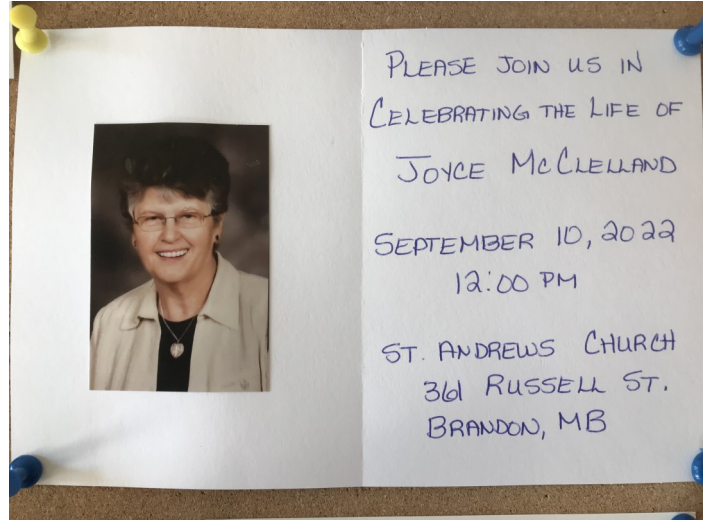 PLEASE JOIN US IN
CELEBRATING THE LIFE OF
JOYCE MCCLELLAND
SEPTEMBER 10, 2022
12:00 PM
ST. ANDREWS CHURCH
361 RUSSELL ST.
BRANDON, MB